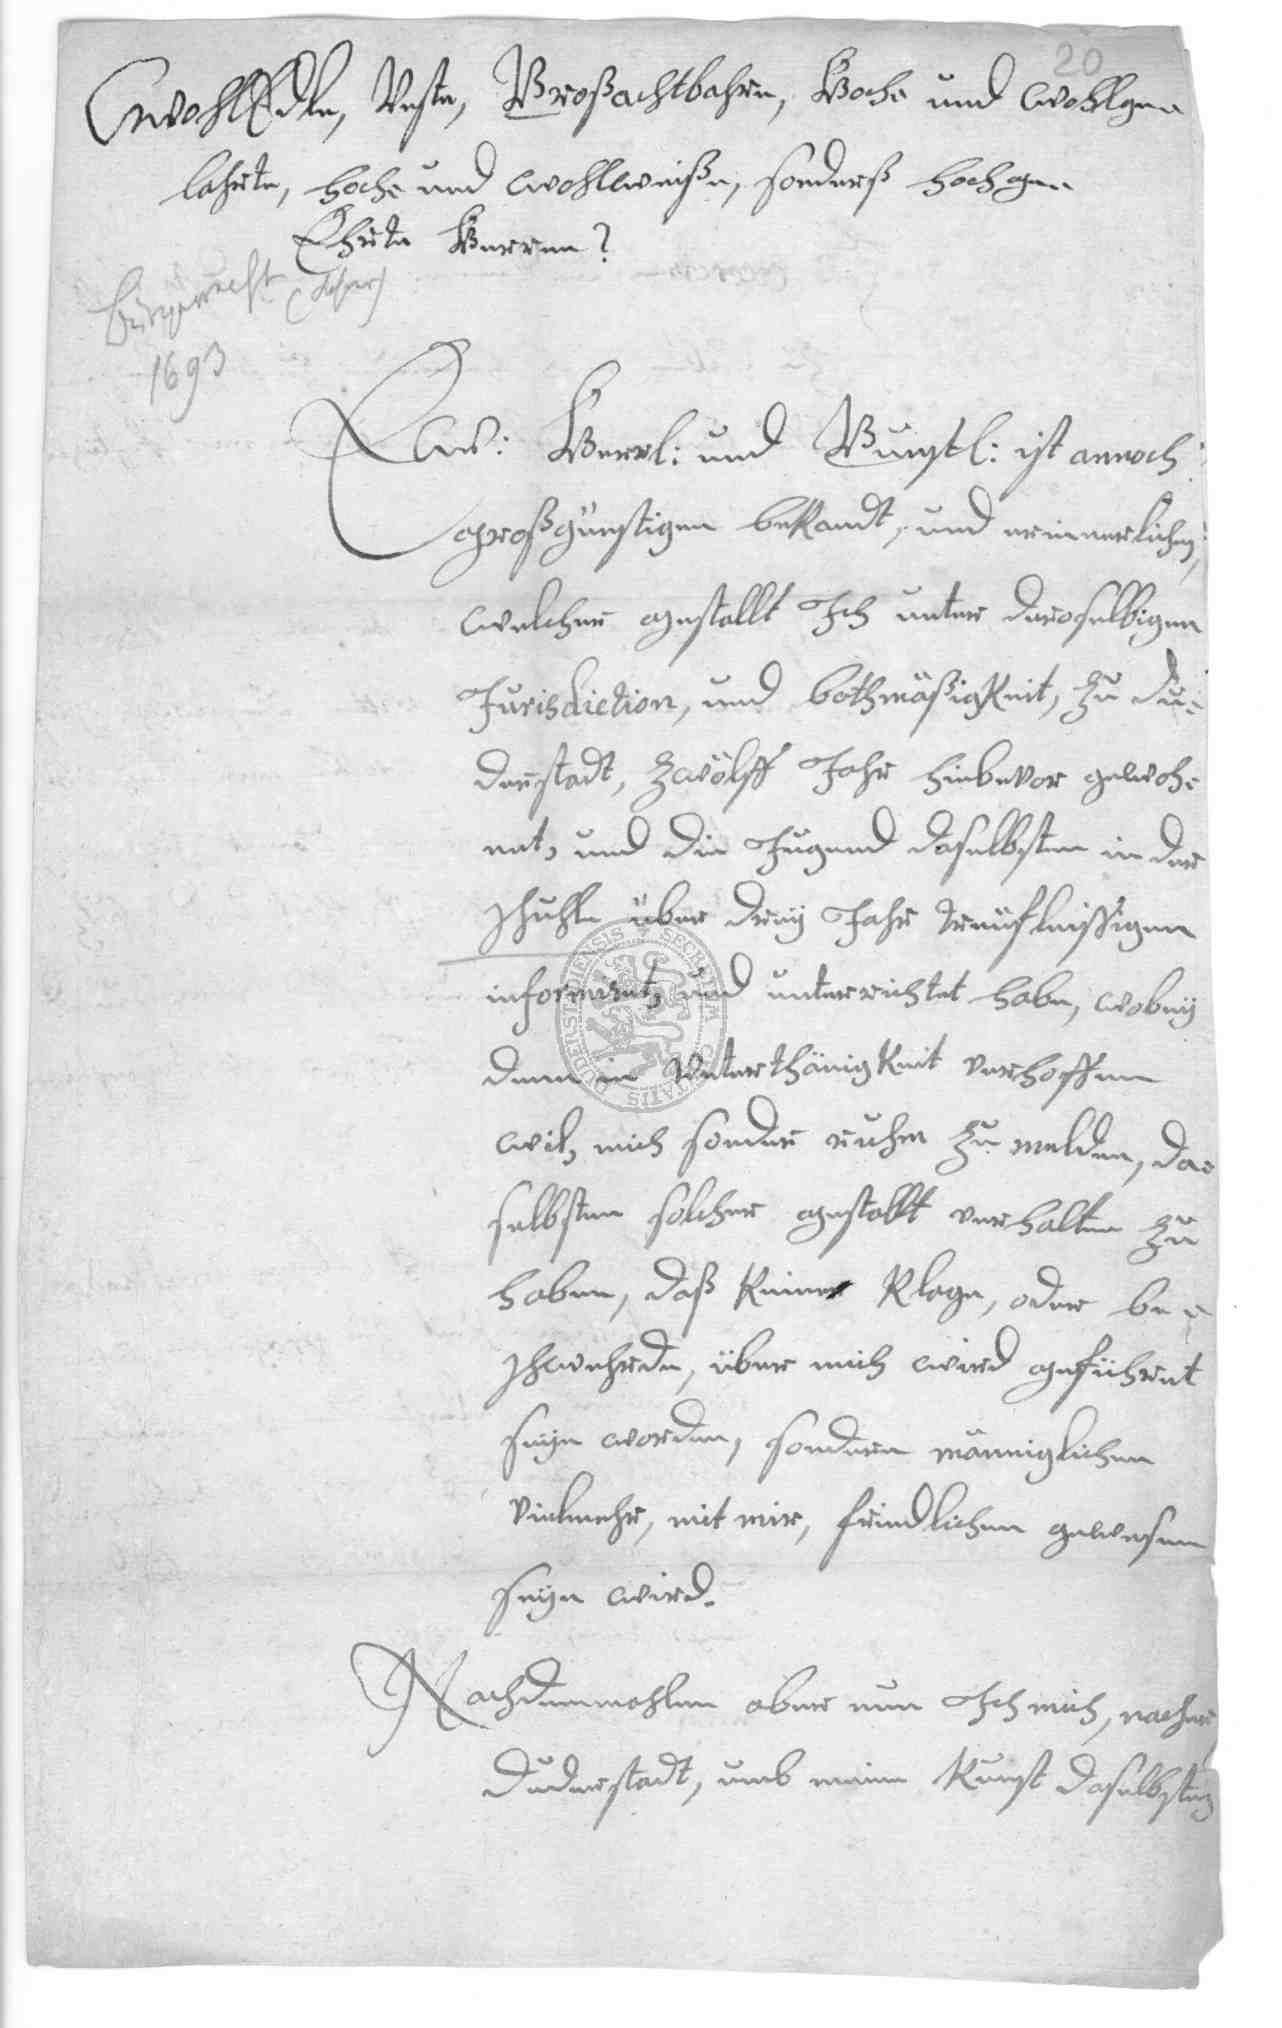 20
WohlEdle, Veste, Großachtbahre, Hoch- und Wohlge-
lahrte, hoch- und wohlweiße, sonderß hochge-
Ehrte Herren?
Bürgerrecht
1693
Ew: Herrl: und Gunstl: ist annoch
großgünstigen bekandt, und erinnerlichen,
welcher gestallt Ich unter deroselbigen
Jurisdiction, und bothmäßigkeit, zu Du-
derstadt, zwölff Jahr hiebevor gewoh-
net, und die Jugend daselbsten in der
schuhle über drey Jahr treüfleissigen
informiret, und unterrichtet habe, wobey
denn in Unterthänigkeit verhoffen
wil, mich sonder ruhm zu melden, da-
selbsten solcher gestallt verhalten zu
haben, daß keine klage, oder be-
schwehrde, über mich wird geführet
seyn worden, sondern männiglichen
vielmehr, mit mir, friedlichen gewesen
seyn wird.
Nachdemmahlen aber nun Ich mich, nacher
Duderstadt, umb meine Kunst daselbsten